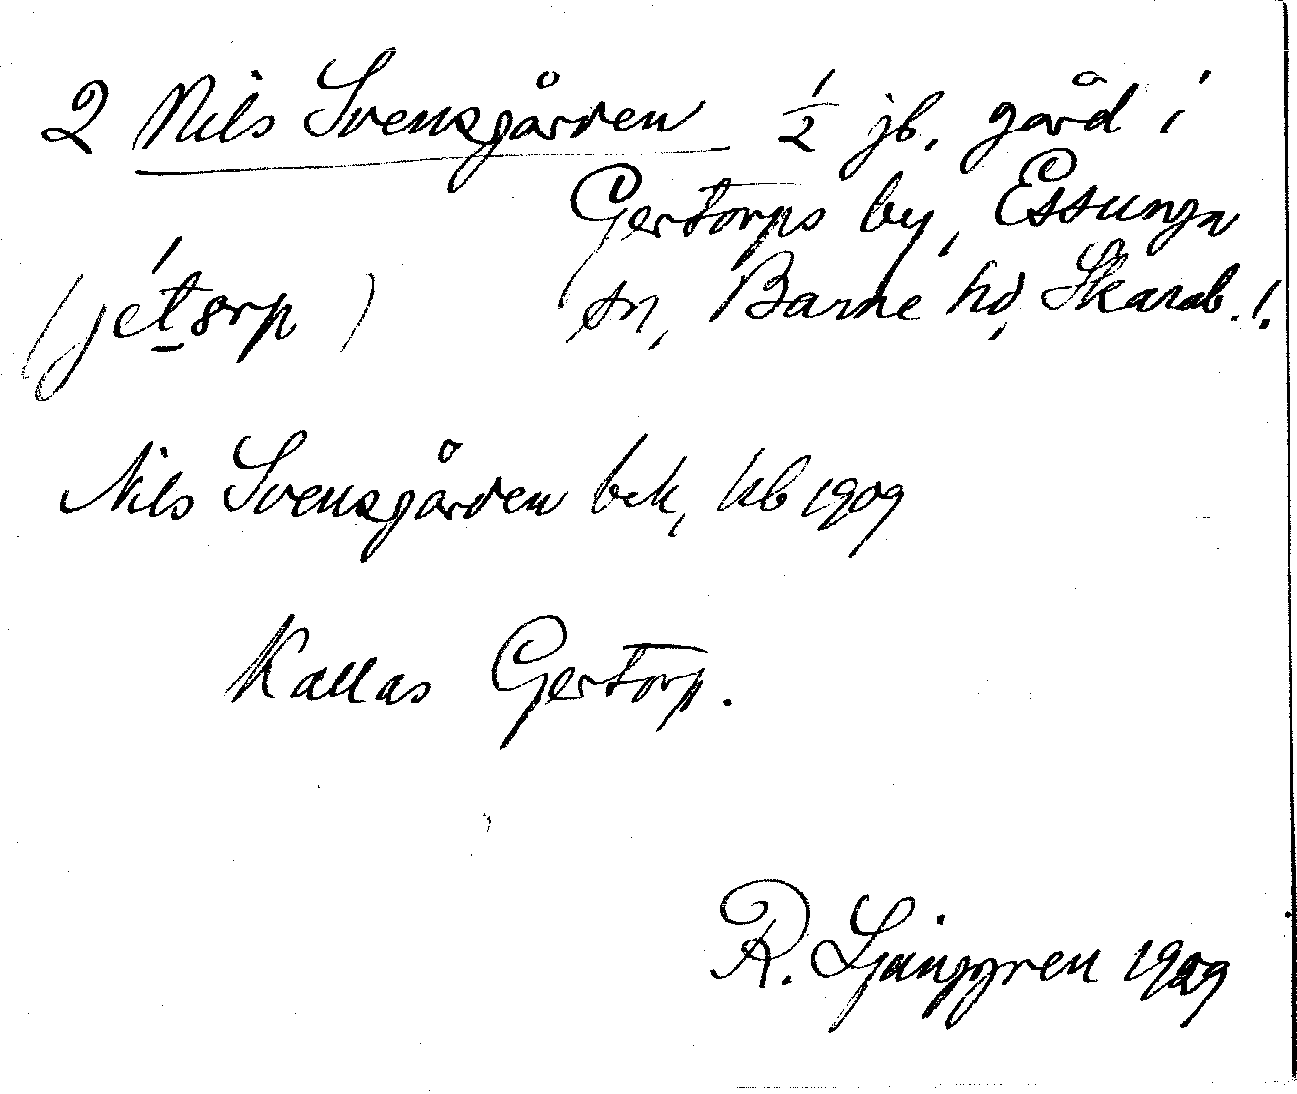 2 Nils Svensgården ½ jb. gård i
Gertorps by, Essunga
(jétorp) sn, Barne hd, Skarab. l.
Nils Svensgården bek, kb 1909
Kallas Gertorp.
R. Ljunggren 1929